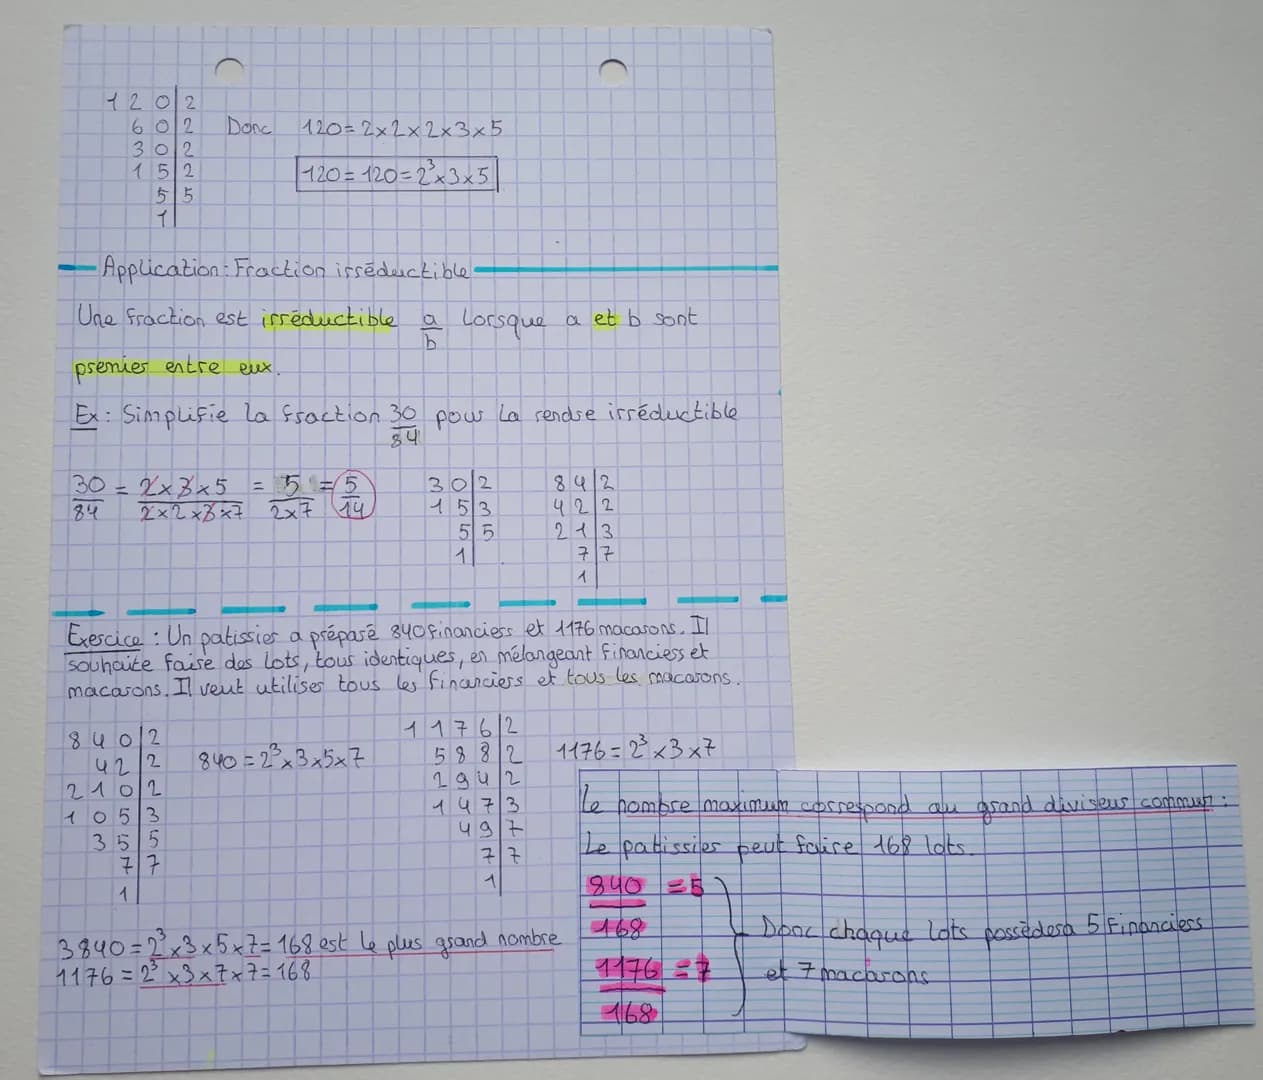 120|2
60|2
30|2
15|2
5|5
1|
Donc 120=2×2×2×3×5
120=120=2³×3×5
Application: Fraction irréductible
Une fraction est irréductible a/b lorsque a et b sont
premier entre eux.
Ex: Simplifie la fraction 30/84 pour la rendre irréductible
30/84 = 2×3×5/2×2×3×7 = 5/2×7 = 5/14
30|2
15|3
5|5
1|
84|2
42|2
21|3
7|7
1|
Exercice: Un patissier a préparé 840 financiers et 1176 macarons. Il
souhaite faire des lots, tous identiques, en mélangeant financiers et
macarons. Il veut utiliser tous les financiers et tous les macarons.
840|2
42|2
210|2
105|3
35|5
7|7
1|
840=2³×3×5×7
1176|2
588|2
294|2
147|3
49|7
7|7
1|
1176=2³×3×7
3840=2³×3×5×7=168 est le plus grand nombre
1176=2³×3×7×7=168
Le nombre maximum correspond au grand diviseur commun:
Le patissier peut faire 168 lots.
840/168 =5
1176/168 =7
Donc chaque lots possèdera 5 Financiers
et 7 macarons